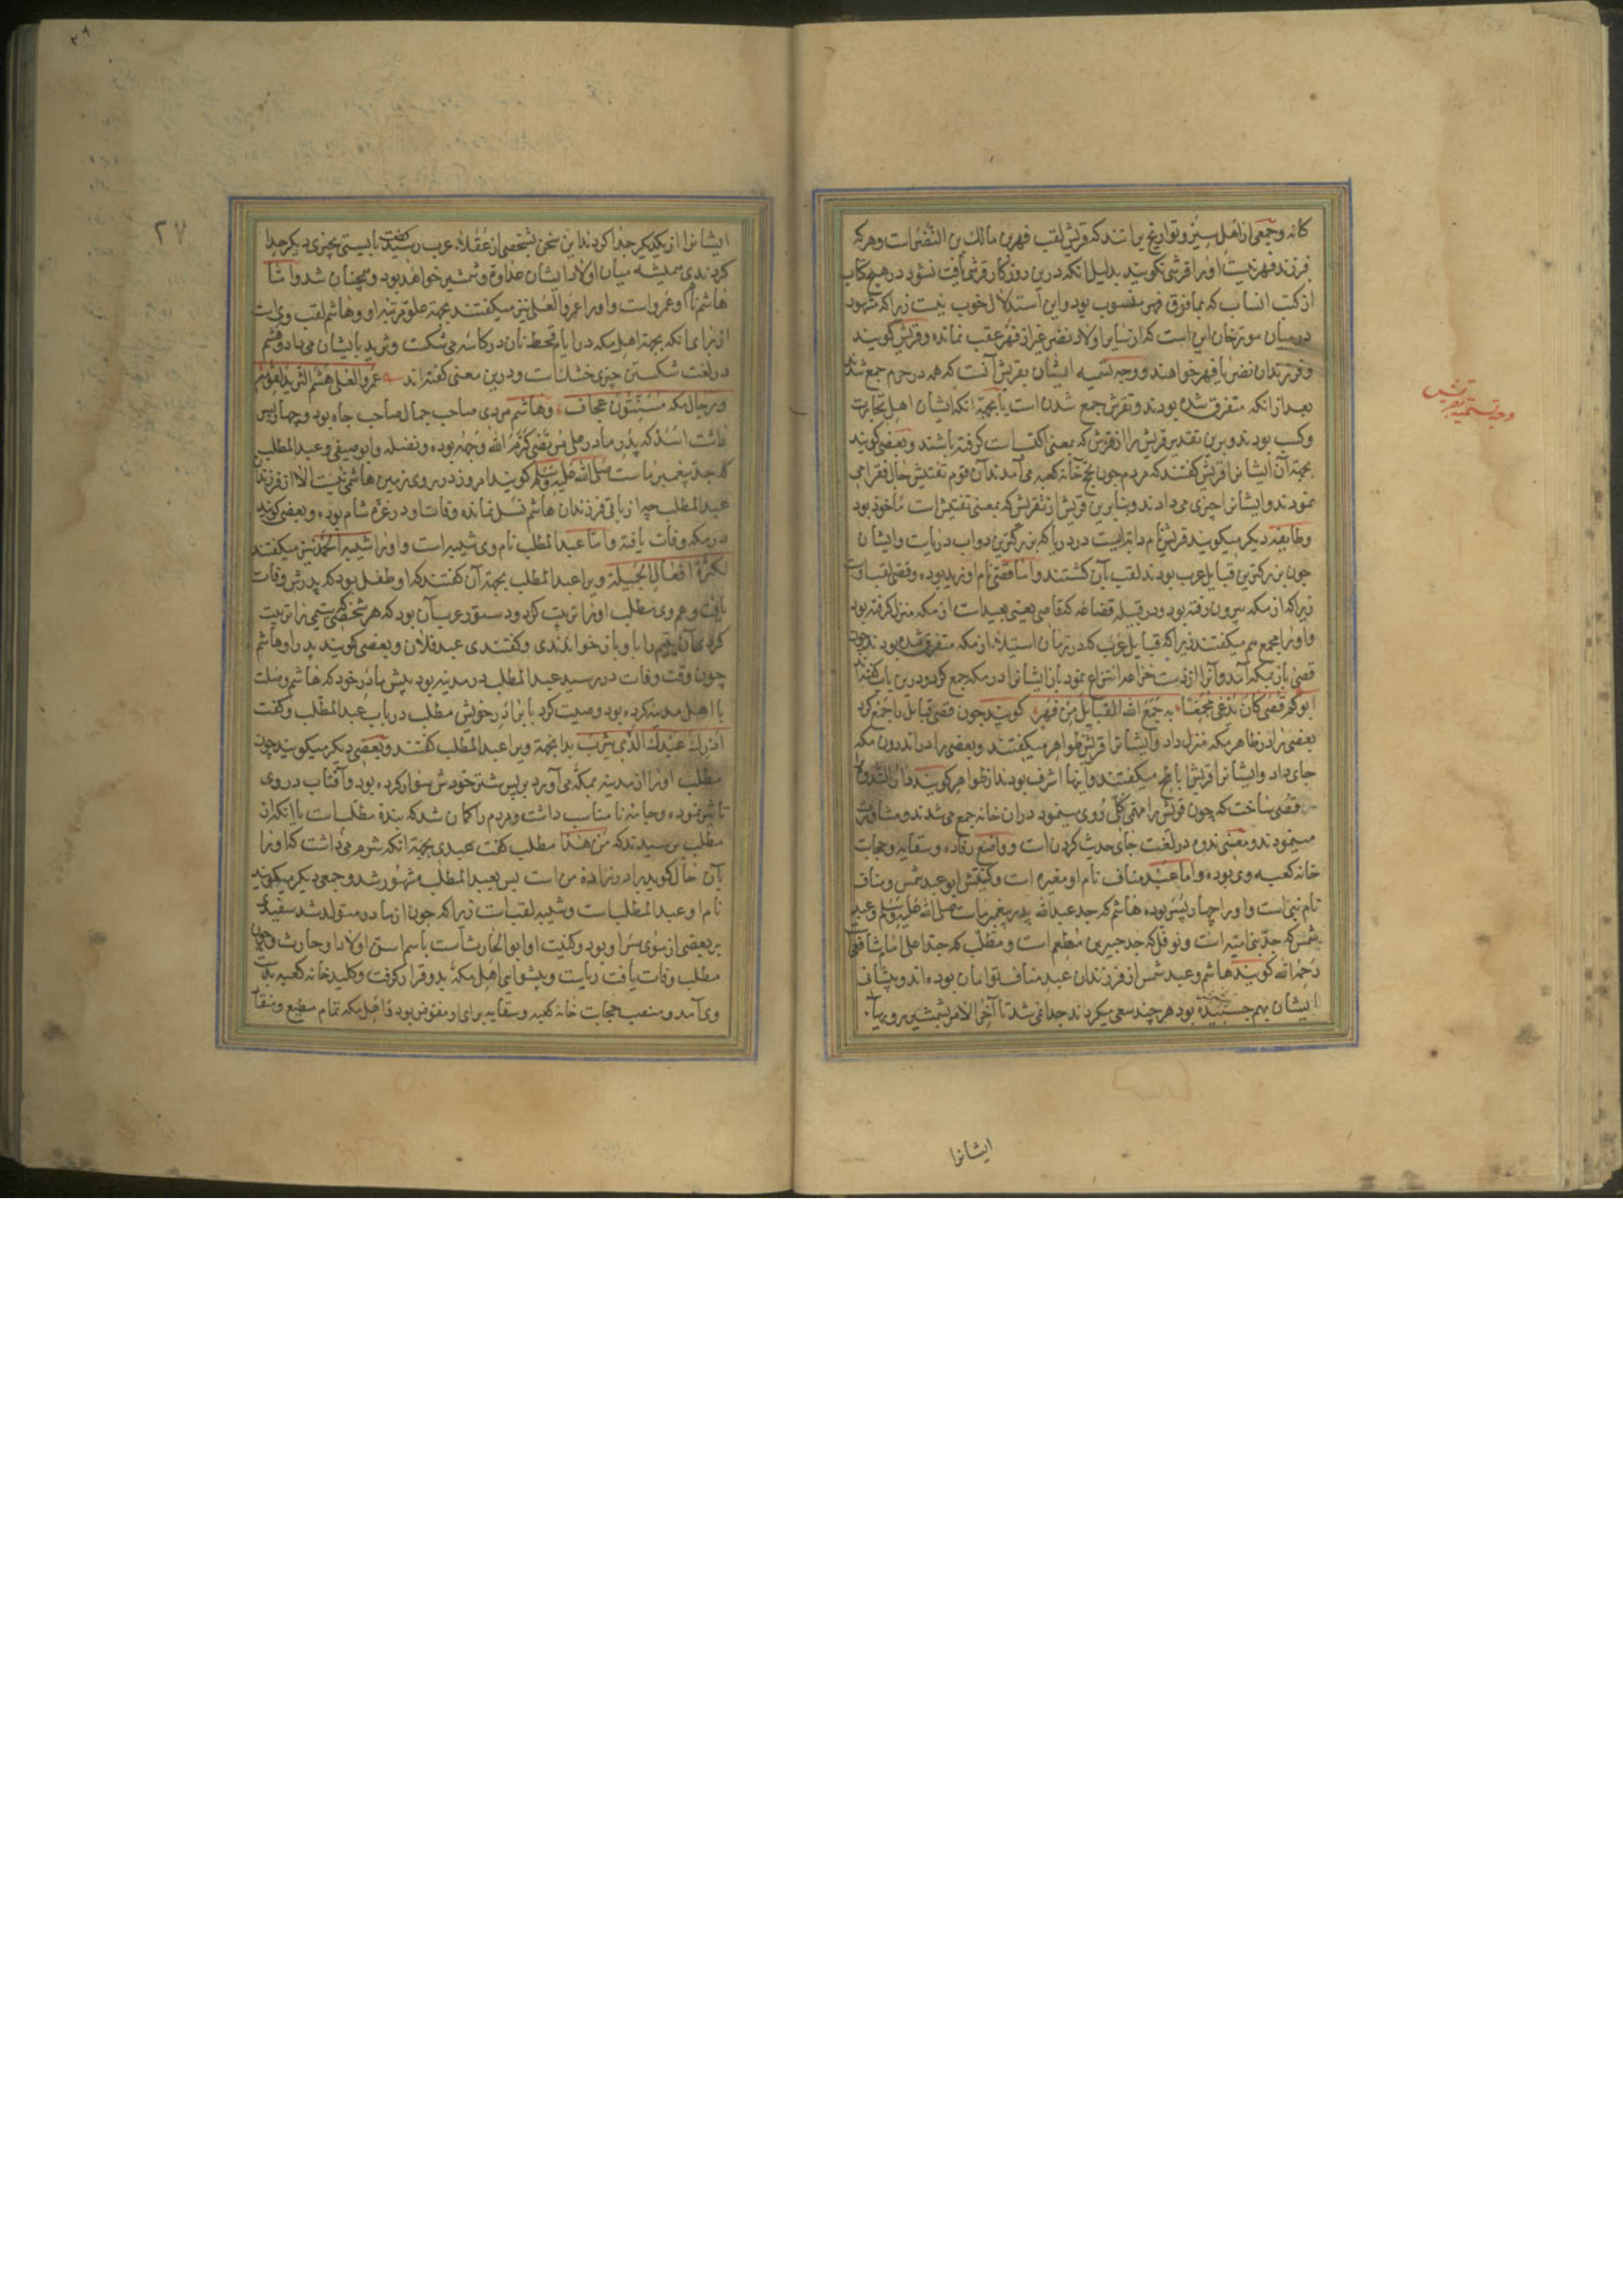 کانه و جمعی از اهل سیر و تواریخ برانند که قریش لقب فهر بن مالک بن النضر است و هر که
فرزند فهر نیست او را قرشی نگویند بدلیل انکه درین روزکار قرشی یافت نشود در هیچ کتاب
از کتب انساب که بمافوق فهر منسوب بود و این استدلال خوب نیست زیرا که مشهور
درمیان مورخان این است که از سایر اولاد نضر غیر از فهر عقب نمانده و قریش کویند
و فرزندان نضر یا فهر خواهند و وجه تسمیه ایشان بقریش آنست که همه در حرم جمع شدند
بعد از انکه متفرق شده بودند و تقرش جمع شدن است یا بجهة انکه ایشان اهل تجارت
و کسب بودند و برین تقدیر قریش را از تقرش که بمعنی اکتساب است کرفته باشند و بعضی کویند
بجهة آن ایشانرا قریش کفتند که مردم چون بحج خانه کعبه می آمدند آن قوم تفتیش حال فقرا می
نمودند و ایشانرا چیزی می دادند و بنابرین قریش از تقریش که بمعنی تفتیش است مأخوذ بود
و طایفه دیکر میکویند قریش نام دابه ایست در دریا که بزرکترین دواب دریاست و ایشان
چون بزرکترین قبایل عرب بودند لقب بآن کشتند و اما قصی نام او زید بوده و قصی لقب اوست
زیرا که از مکه بیرون رفته بود و در قبیله قضاعه که مقامی یعنی بعید است از مکه منزل کرفته بود
و او را مجمع هم میکفتند زیرا که قبایل عرب که در زمان استیلاء از مکه متفرق شده بودند چون
قصی باز بمکه آمد و آنرا از دست خزاعه انتزاع نمود باز ایشانرا در مکه جمع کرد و درین باب کفته اند
ابوکم قصی کان یدعی مجمعا به جمع الله القبایل من فهر کویند چون قصی قبایل را جمع کرد
بعضی را در ظاهر مکه منزل داد و ایشانرا قریش ظواهر میکفتند و بعضی را در اندرون مکه
جای داد و ایشانرا قریش اباطح میکفتند و اینها اشرف بودند از ظواهر کویند دار الندوه را
قصی ساخت که چون قریش را مهمی کلی روی مینمود دران خانه جمع می شدند و مشاورت
مینمودند و معنی ندوه در لغت جای حدیث کردن است و واضع رفاده و سقایه و حجابت
خانه کعبه وی بوده و اما عبد مناف نام او مغیره است و کنیتش ابو عبد شمس و مناف
نام بتی است و او را چهار پسر بوده هاشم که جد عبدالله پدر پیغمبر ماست صلی الله علیه وسلم و عبد
شمس که جد بنی امیه است و نوفل که جد جبیر بن مطعم است و مطلب که جد اعلی امام شافعی
رحمه الله کویند هاشم و عبد شمس از فرزندان عبد مناف توامان بوده اند و پیشانی
ایشان بهم چسبیده بود هر چند سعی میکردند جدا نمی شد تا آخر الامر بشمشیر
ایشانرا
وجه تسمیه بقریش
۲۷
ایشانرا از یکدیکر جدا کردند این سخن بشخصی از عقلاء عرب رسید کفت بایستی بچیزی دیکر جدا
کردندی همیشه میان اولاد ایشان عداوة و شمشیر خواهد بود و همچنان شد و اما
هاشم نام او عمرو است و او را عمرو العلی نیز میکفتند بجهة علو مرتبه او و هاشم لقب وی است
از برای انکه بجهة اهل مکه در ایام قحط نان در کاسه می شکست و ثرید بایشان می داد و هشم
در لغت شکستن چیزی خشک است و درین معنی کفته اند عمرو العلی هشم الثرید لقومه
ورجال مکه مسنتون عجاف و هاشم مردی صاحب جمال صاحب جاه بود و چهار پسر
داشت اسد که پدر مادر علی مرتضی کرم الله وجهه بوده و نضله و ابو صیفی و عبد المطلب
که جد پیغمبر ماست صلی الله علیه وسلم کویند امروز در روی زمین هاشمی نیست الا از فرزندان
عبد المطلب چه از باقی فرزندان هاشم نسل نمانده وفات او در غزه شام بوده و بعضی کویند
در مکه وفات یافته و اما عبد المطلب نام وی شیبه است و او را شیبة الحمد نیز میکفتند
لکثرة افعاله الجمیلة و ویرا عبد المطلب بجهة آن کفتند که او طفل بود که پدرش وفات
یافت و عم وی مطلب او را تربیت کرد و دستور عرب آن بود که هر شخصی که یتیمی را تربیت
کردی آن یتیم را باو باز خواندندی و کفتندی عبد فلان و بعضی کویند پدر او هاشم
چون وقت وفات در رسید عبد المطلب در مدینه بود پیش مادر خود که هاشم وصلت
با اهل مدینه کرده بود وصیت کرد با برادر خویش مطلب در باب عبد المطلب و کفت
ادرک عبدک الذی بیثرب بدانجهة ویرا عبد المطلب کفتند و بعضی دیکر میکویند چون
مطلب او را از مدینه بمکه می آورد بر پس شتر خودش سوار کرده بود و آفتاب در وی
تاثیر نموده و جامه نامناسب داشت و مردم را کمان شد که بنده مطلب است یا انکه از
مطلب پرسیدند که من هذا مطلب کفت عبدی بجهة انکه شرم می داشت که او را
بآن حال کوید برادرزاده من است پس بعبد المطلب مشهور شد و جمعی دیکر میکویند
نام او عبد المطلب است و شیبه لقب است زیرا که چون از مادر متولد شد سفیدی
بر بعضی از موی سر او بود و کنیت او ابو الحارث است باسم اسن اولاد او حارث و چون
مطلب وفات یافت ریاست و پیشوایی اهل مکه بدو قرار کرفت و کلید خانه کعبه بدست
وی آمد و منصب حجابت خانه کعبه و سقایه برای او مفوض بود و اهل مکه تمام مطیع و منقاد